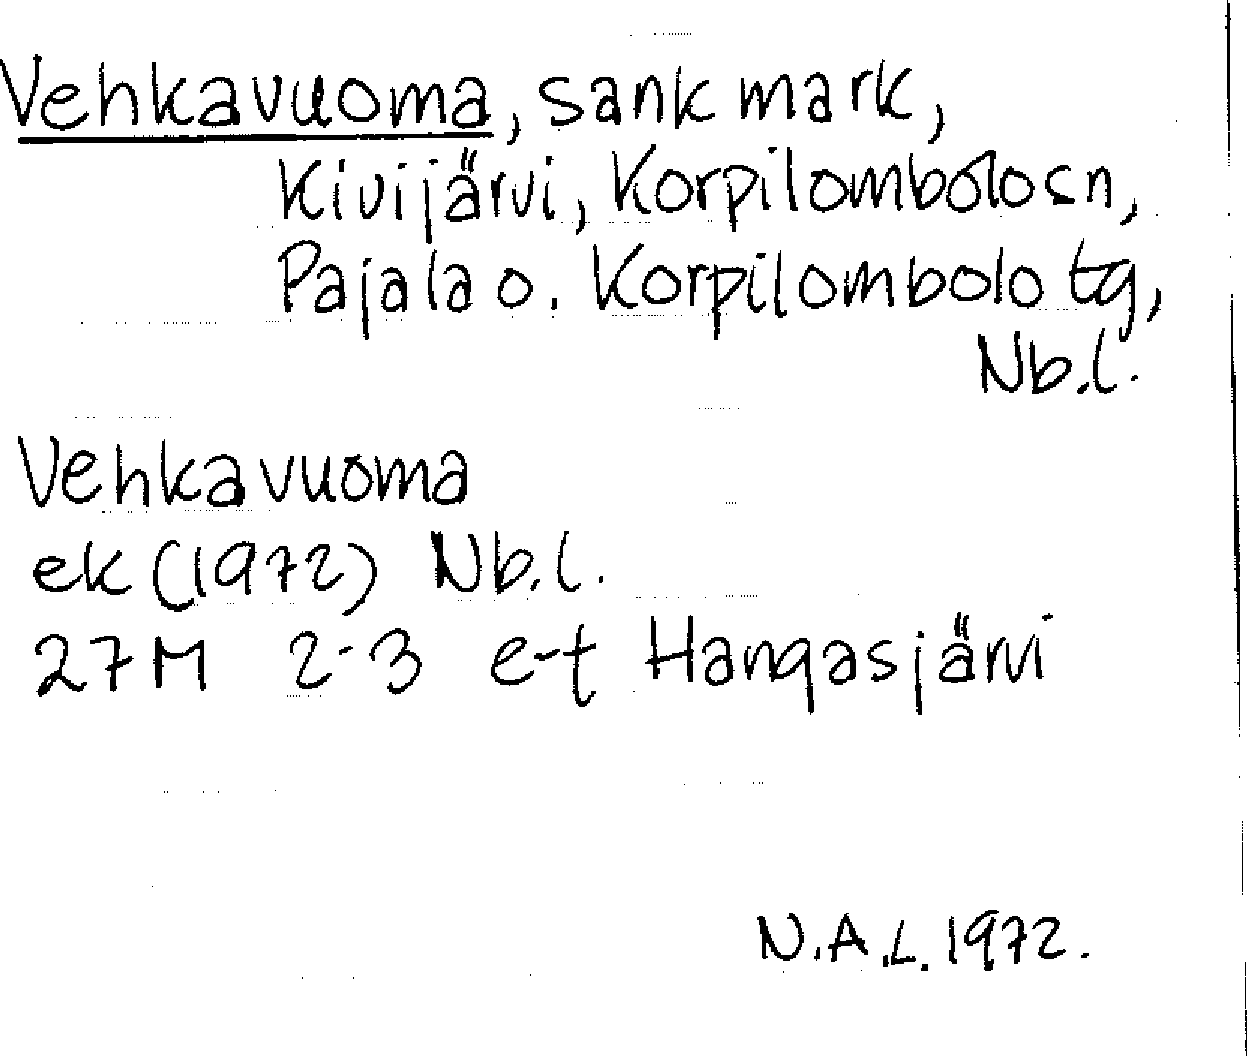 Vehkavuoma, sank mark,
Kivijärvi, Korpilombolo sn,
Pajala o. Korpilombolo tg,
Nb.l.
Vehkavuoma
ek (1972) Nb.l.
27M 2-3 e-f Hangasjärvi
N.A.L. 1972.